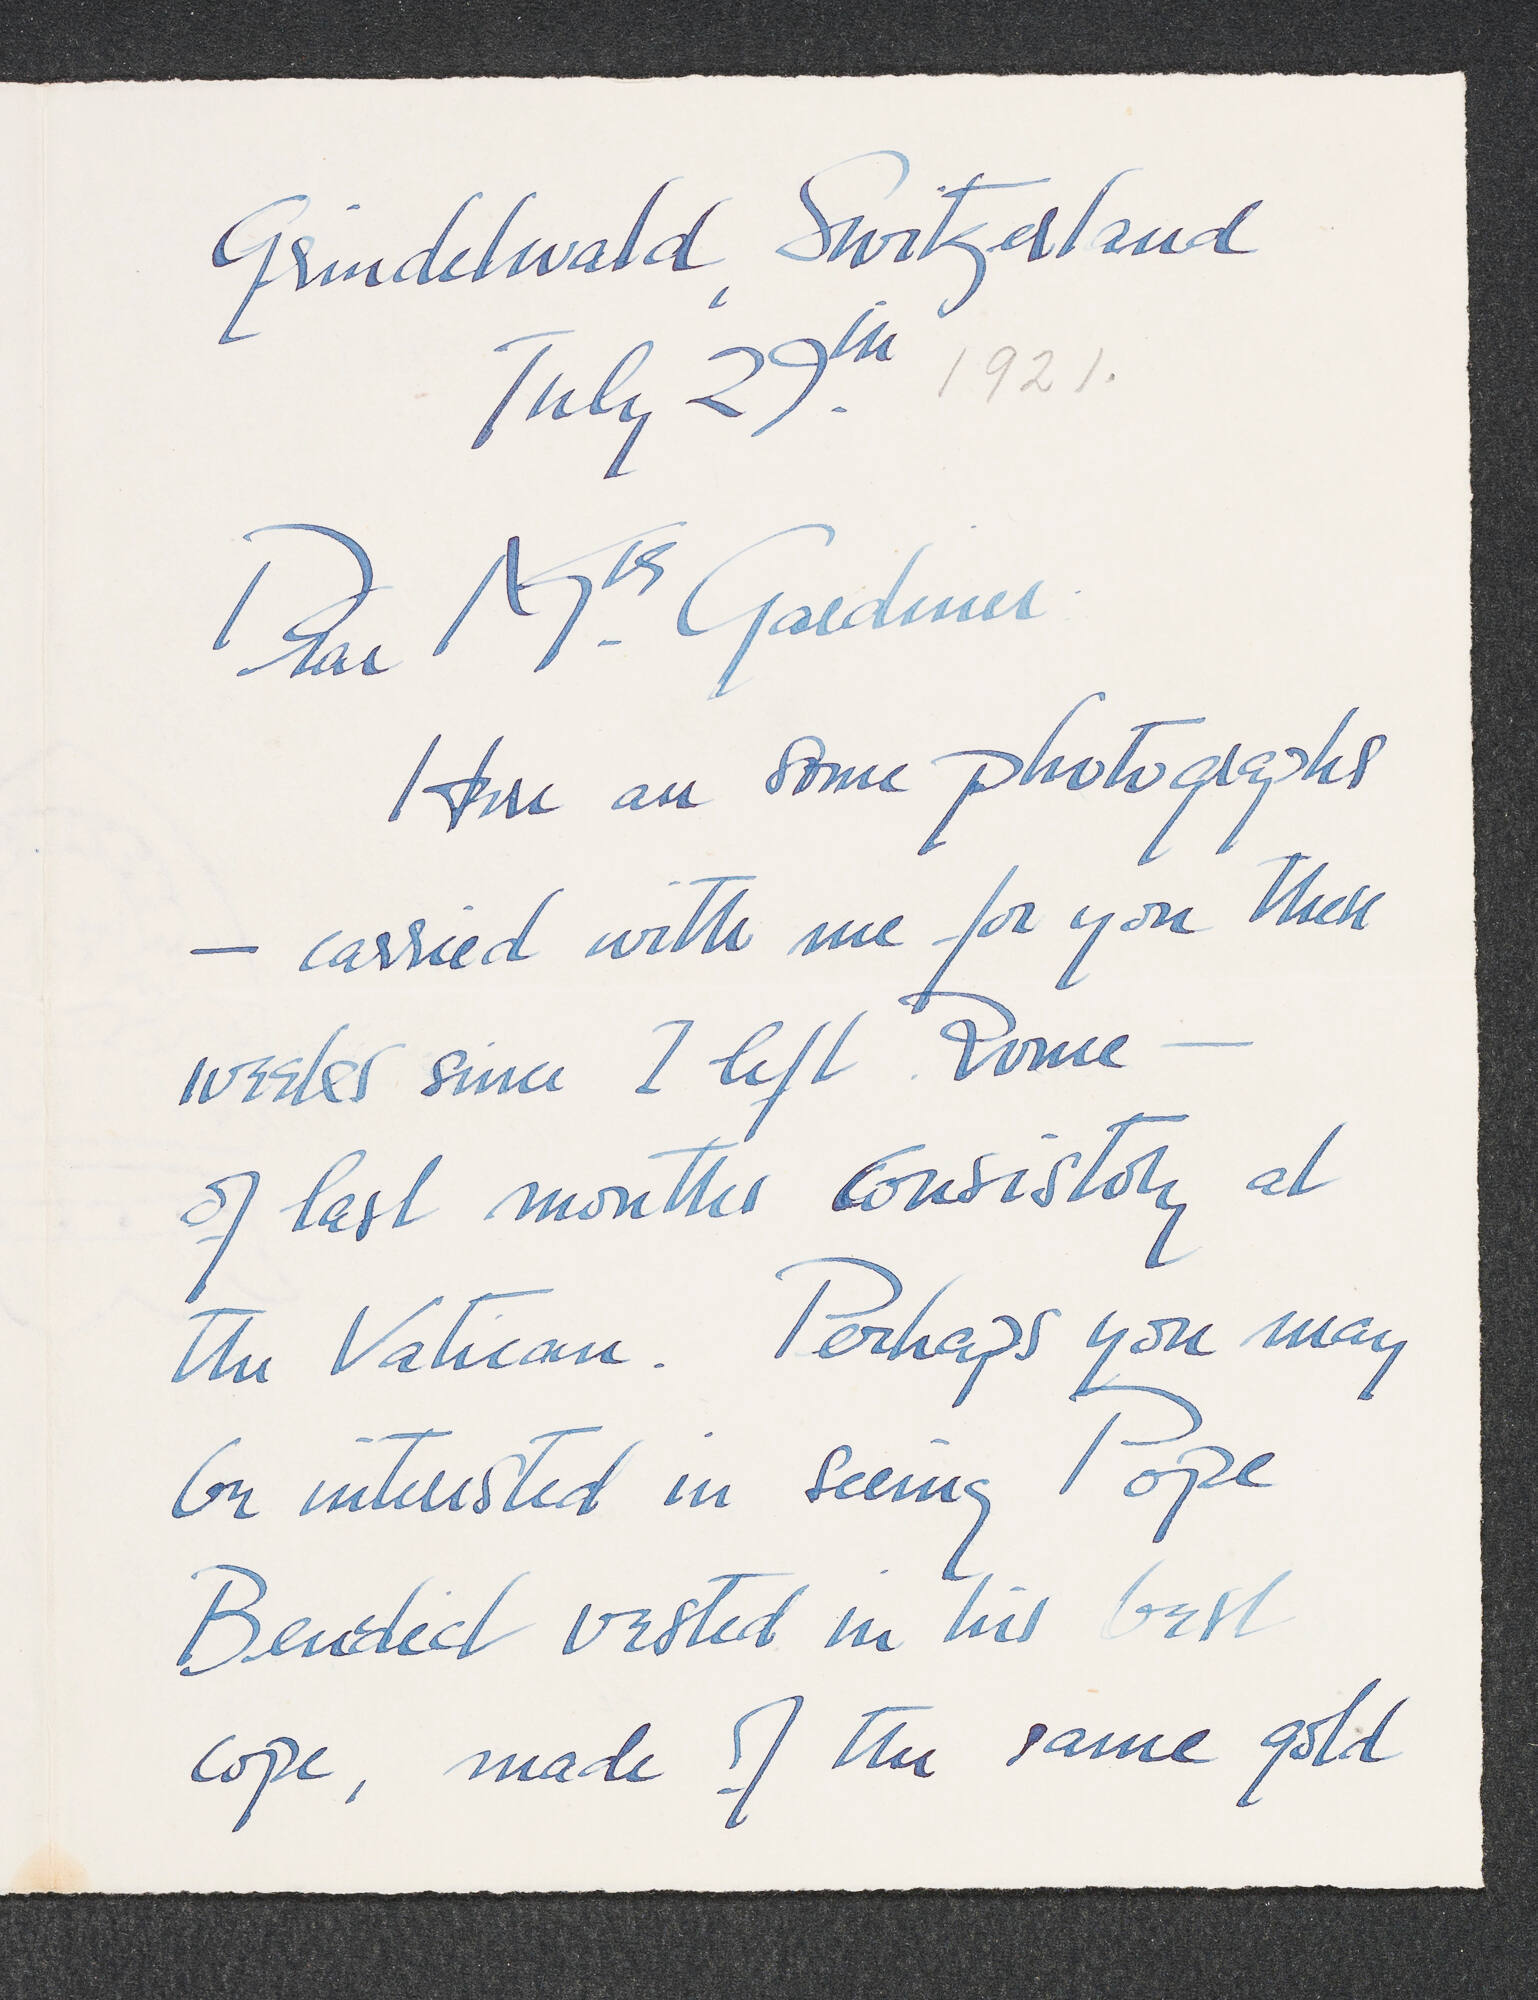 Grindelwald, Switzerland
July 29th. 1921.
Dear Mrs. Gardiner
Here are some photographs
— carried with me for you these
weeks since I left Rome —
of last months consistory at
the Vatican. Perhaps you may
be interested in seeing Pope
Benedict vested in his best
cope, made of the same gold